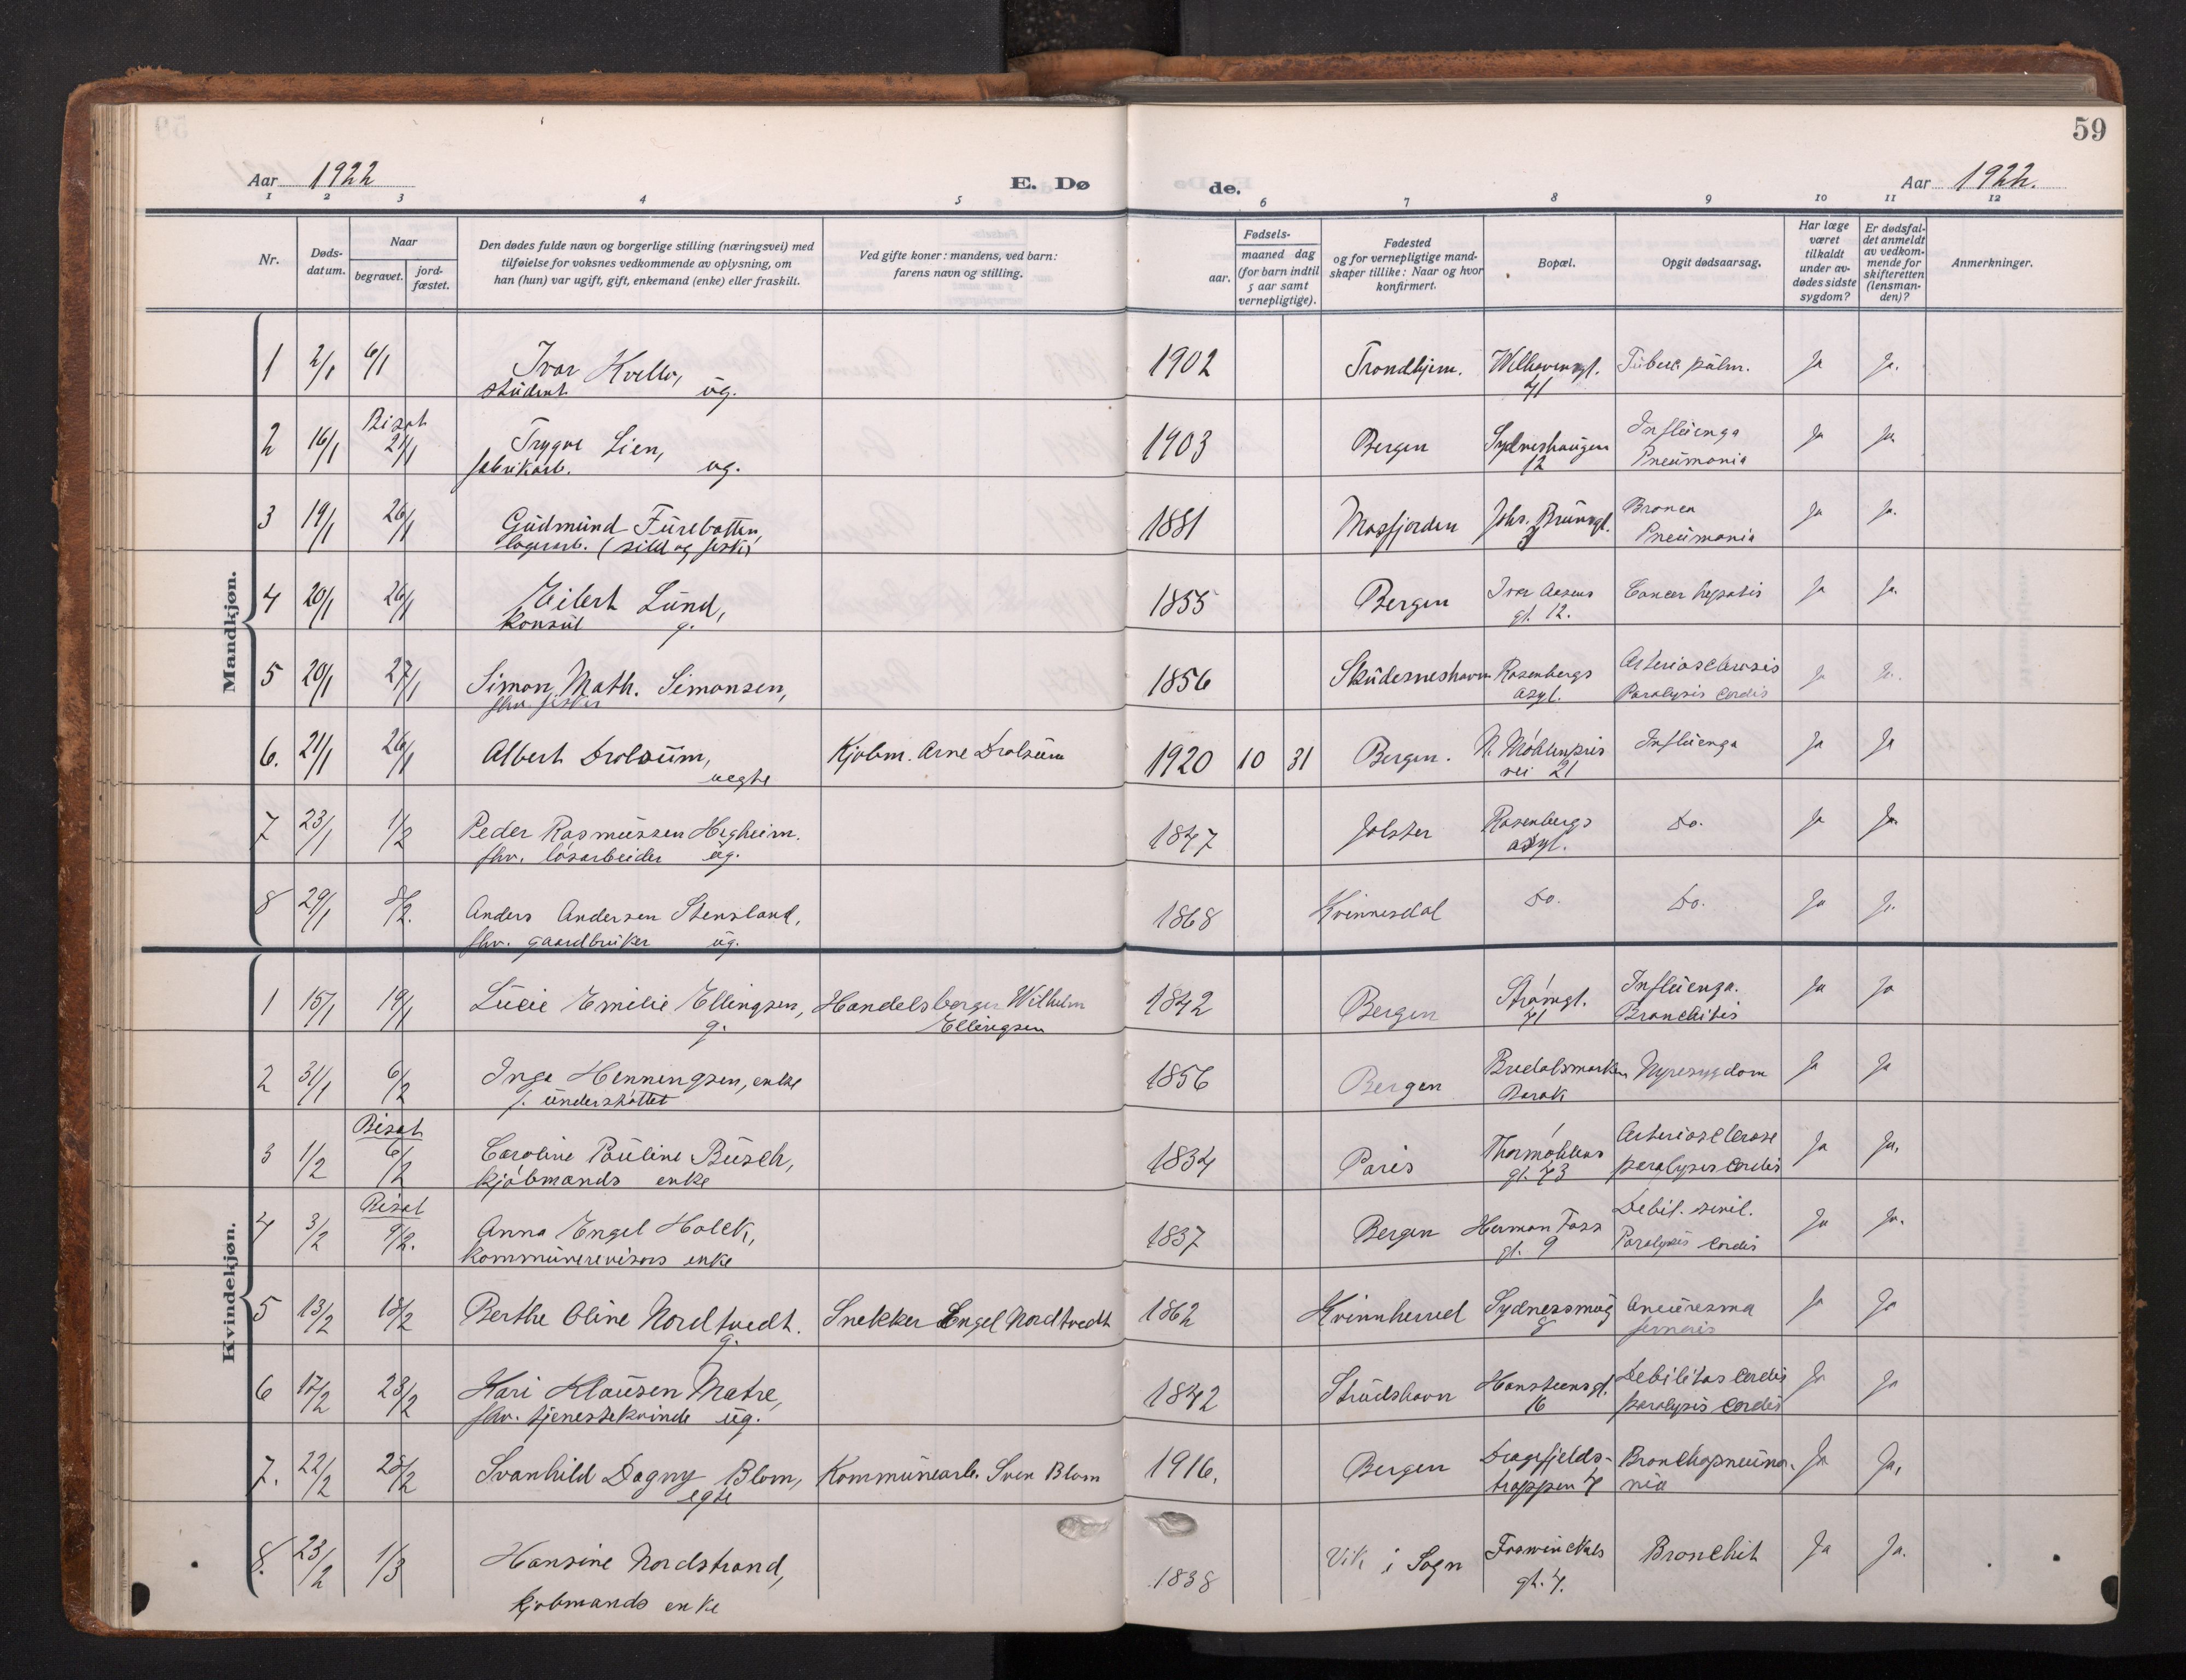 59
Aar 1922 E. Dø de. Aar 1922.
1 2 3 4 5 6 7 8 9 10 11 12
Nr. Døds-datum. Naar begravet. jord-fæstet. Den dødes fulde navn og borgerlige stilling (næringsvei) med tilføielse for voksnes vedkommende av oplysning, om han (hun) var ugift, gift, enkemand (enke) eller fraskilt. Ved gifte koner: mandens, ved barn: farens navn og stilling. Fødsels- aar. maaned dag (for barn indtil 5 aar samt vernepligtige). Fødested og for vernepligtige mand-skaper tillike: Naar og hvor konfirmert. Bopæl. Opgit dødsaarsag. Har læge været tilkaldt under av-dødes sidste sygdom? Er dødsfal-det anmeldt av vedkom-mende for skifteretten (lensman-den)? Anmerkninger.
Mandkjøn.
1 2/1 6/1 Ivar Kvello, 1902 Trondhjem. Welhavensgt. Tuberc pulm. Ja Ja.
student ug. 41
Bisat
2 16/1 21/1 Trygve Lien, 1903 Bergen Sydneshaugen Influenza Ja Ja
fabrikarb. ug. 12 Pneumonia
3 19/1 26/1 Gudmund Furebotten, 1881 Masfjorden Johs. Brunsgt. Bronca Ja Ja.
lagerarb. (sild og fisk) Pneumonia
4 20/1 26/1 Eilert Lund, 1855 Bergen Ivar Aasens Cancer hepatis Ja Ja.
Konsul g. gt. 12.
5 20/1 27/1 Simon Math. Simonsen, 1856 Skudesneshavn Rosenbergs Arteriosclerosis Ja Ja.
fhv. fisker asyl. Paralysis cordis
6. 21/1 26/1 Albert Drolsum, Kjøbm. Arne Drolsum 1920 10 31 Bergen. N. Møhlenpris Influenza Ja Ja
uegte vei 21
7 23/1 1/2 Peder Rasmussen Hegheim. 1847 Jølster Rosenbergs Do. Ja Ja.
fhv. løsarbeider ug. asyl.
8 29/1 8/2. Anders Andersen Stensland, 1868 Kvinnesdal Do. Do. Ja Ja.
fhv. gaardbruker ug.
Kvindekjøn.
1 15/1 19/1 Lucie Emilie Ellingsen, Handelsborger Wilhelm 1842 Bergen Strømgt. Influenza. Ja Ja
g. Ellingsen 41 Bronchitis
2 31/1 6/2 Inga Henningsen, enke 1856 Bergen Bredalsmarken Nyresygdom Ja Ja
f. understøttet Barak
Bisat
3 1/2 6/2 Caroline Pauline Busch, 1834 Paris Thormøhlens Arteriosclerose Ja Ja,
kjøbmands enke gt. 43 paralysis cordis
Bisat
4 3/2 9/2. Anna Engel Holck, 1837 Bergen Herman Foss Debil. senil. Ja Ja.
kommunerevisors enke gt. 9 Paralysis cordis
5 13/2 18/2 Berthe Oline Nordtvedt. Snekker Engel Nordtvedt 1862 Kvinnherred Sydnessmug Aneuresma Ja Ja
g. 8
6 17/2 23/2 Kari Klausen Matre, 1842 Strudshavn Hansteensgt. Debilitas cordis Ja Ja
fhv. tjenestekvinde ug. 16 paralysis cordis
7. 22/2 28/2 Svanhild Dagny Blom, Kommunearb. Sven Blom 1916. Bergen Dragefjelds- Bronchopneumo- Ja Ja,
egte trappen 4 nia
8. 23/2 1/3 Hansine Nordstrand, 1838 Vik i Sogn Foswinckels Bronchit Ja Ja.
kjøbmands enke gt. 4.